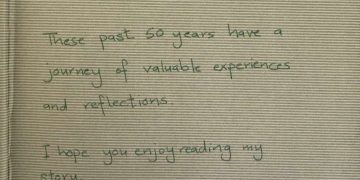 These past 50 years have a
journey of valuable experiences
and reflections.
I hope you enjoy reading my
story